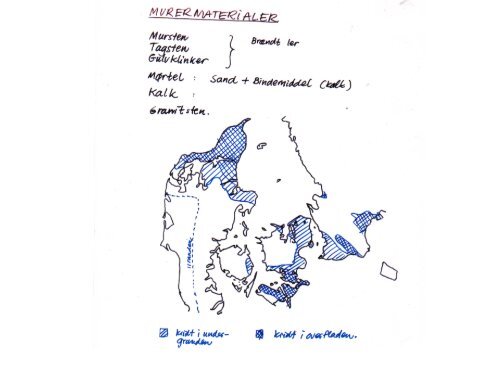 MURERMATERIALER
Mursten
Tagsten
Gulvklinker
Brændt ler
Mørtel : Sand + Bindemiddel (kalk)
Kalk :
Granitsten.
kridt i under-
grunden
kridt i overfladen.